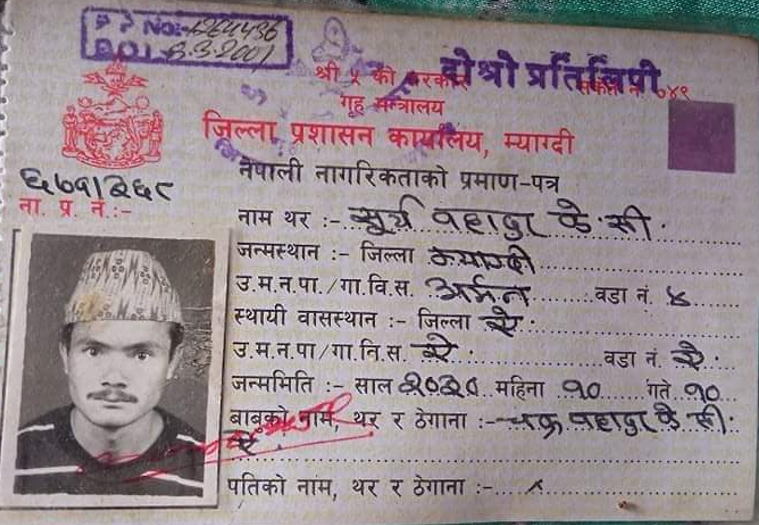 P P NO:- 1264436
D.O.I. 8.3.2001
दोश्रो प्रतिलिपी
श्री ५ को सरकार
गृह मन्त्रालय
जिल्ला प्रशासन कार्यालय, म्याग्दी
नेपाली नागरिकताको प्रमाण-पत्र
ना. प्र. नं.:-
नाम थर :- सूर्य वहादुर के.सी.
जन्मस्थान :- जिल्ला म्याग्दी
उ.म.न.पा./गा.वि.स. अर्मन वडा नं. ४
स्थायी वासस्थान :- जिल्ला ऐ.
उ.म.न.पा/गा.नि.स. ऐ. वडा नं. ऐ.
जन्ममिति :- साल २०३० महिना १० गते १०
बाबुको नाम, थर र ठेगाना :- चक्र वहादुर के.सी.
ऐ.
पतिको नाम, थर र ठेगाना :- ×